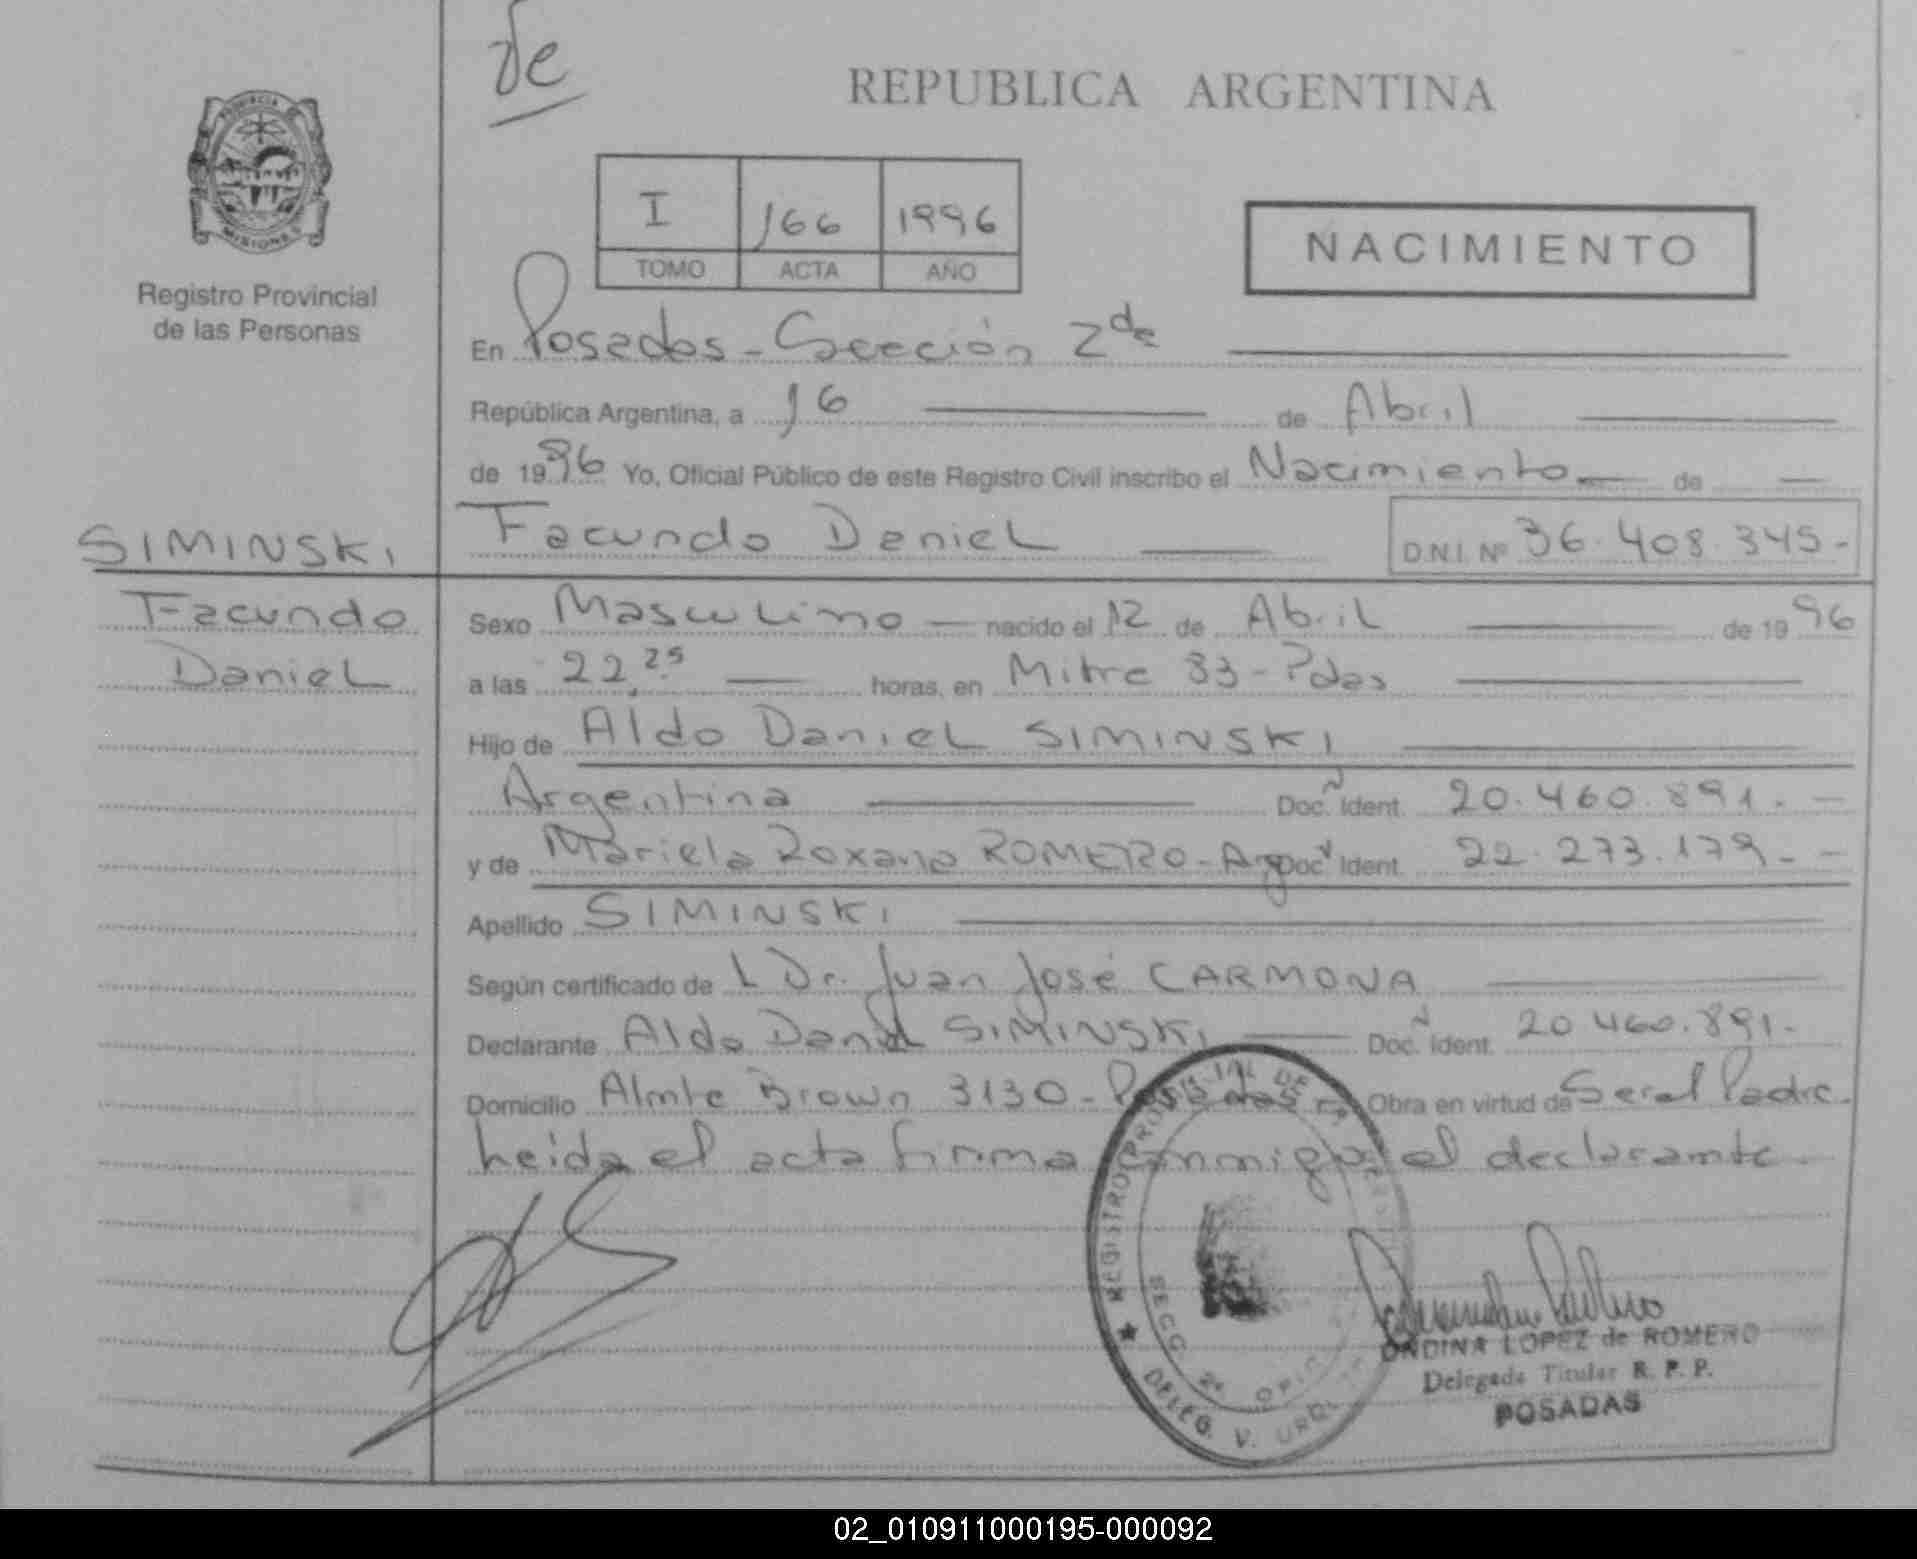 de
REPUBLICA ARGENTINA
PROVINCIA
MISIONES
Registro Provincial
de las Personas
I 166 1996
TOMO ACTA AÑO
NACIMIENTO
En Posadas - Sección 2da
República Argentina, a 16 de Abril
de 1996 Yo, Oficial Público de este Registro Civil inscribo el Nacimiento de
SIMINSKI Facundo Daniel D.N.I. Nº 36.408.345.-
Facundo Sexo Masculino nacido el 12 de Abril de 1996
Daniel a las 22,25 horas, en Mitre 83 - Pdas
Hijo de Aldo Daniel SIMINSKI
Argentina Doc. Ident. 20.460.891.-
y de Mariela Roxana ROMERO - Arg Doc. Ident. 22.273.179.-
Apellido SIMINSKI
Según certificado de L Dr. Juan José CARMONA
Declarante Aldo Daniel SIMINSKI Doc. Ident. 20460.891.-
Domicilio Almte Brown 3130 - Posadas Obra en virtud de Ser el Padre.
Leida el acta firma conmigo el declarante.
REGISTRO PROVINCIAL DE LAS
SECC. 2ª
DELEG. V. URQ
ONDINA LOPEZ de ROMERO
Delegada Titular R. P. P.
POSADAS
02_010911000195-000092